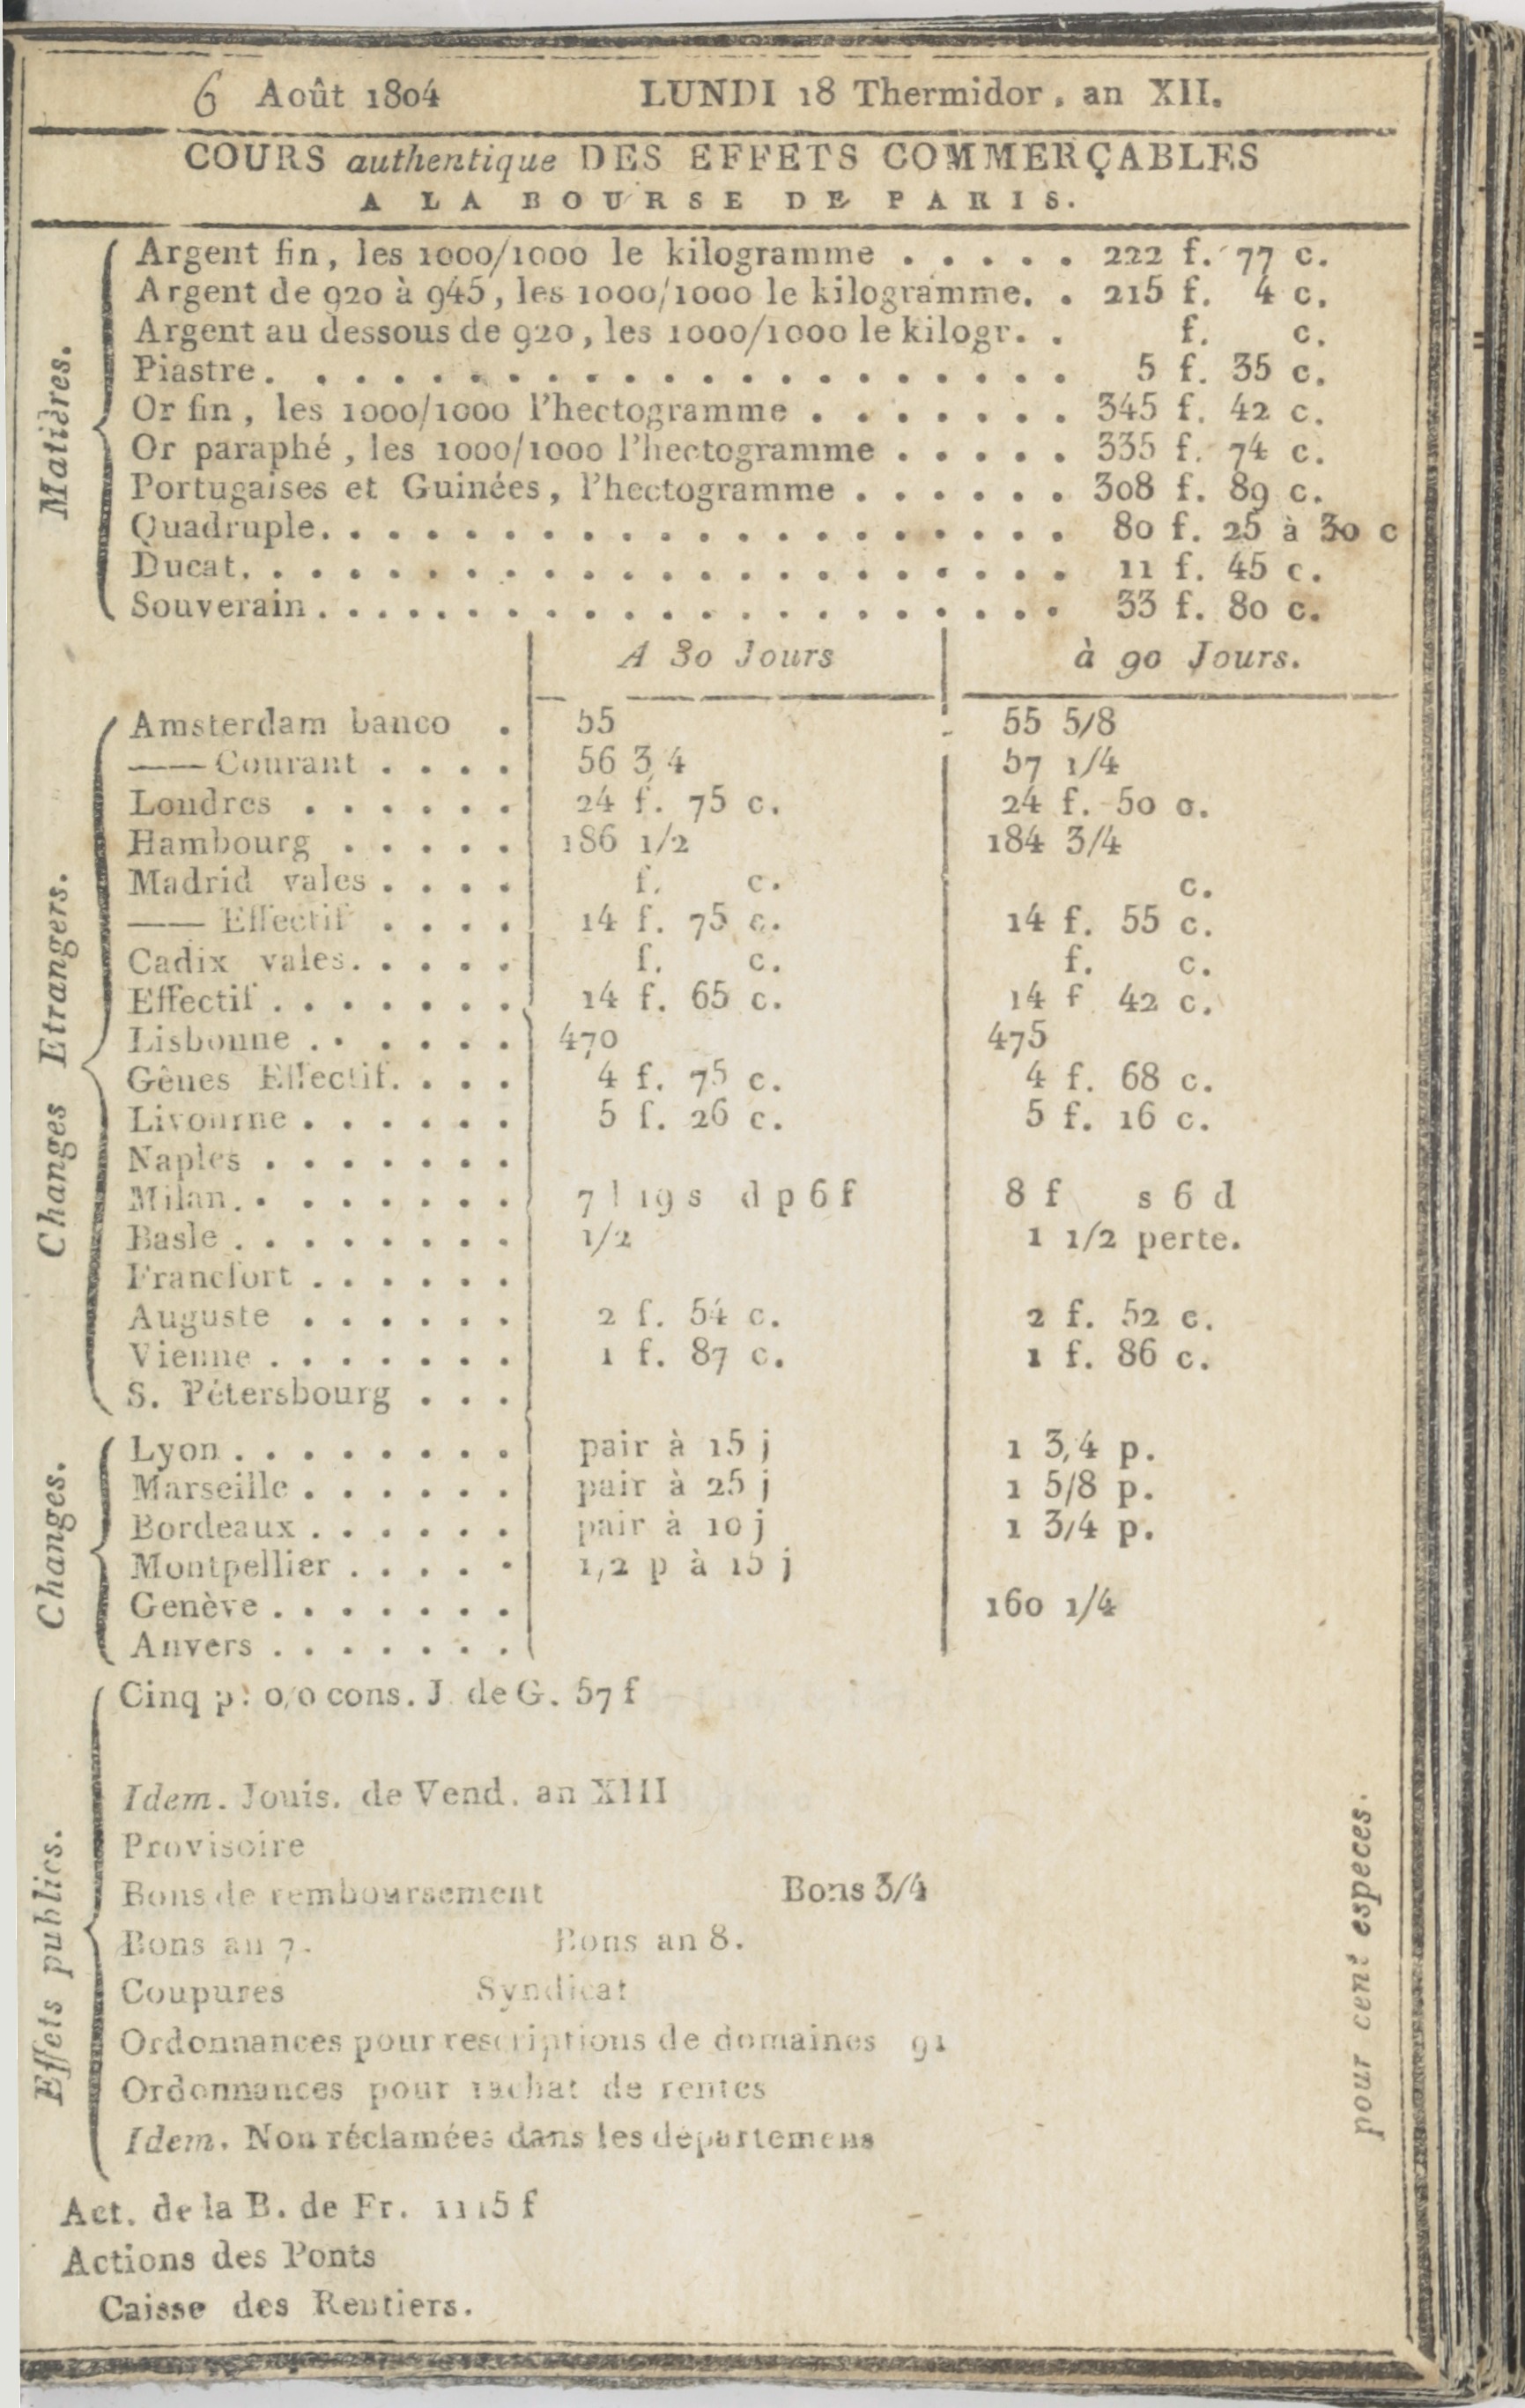 6 Août 1804 LUNDI 18 Thermidor, an XII.
COURS authentique DES EFFETS COMMERÇABLES
A LA BOURSE DE PARIS.
Matières.
Argent fin, les 1000/1000 le kilogramme . . . . . 222 f. 77 c.
Argent de 920 à 945, les 1000/1000 le kilogramme. . 215 f. 4 c.
Argent au dessous de 920, les 1000/1000 le kilogr. . f. c.
Piastre. . . . . . . . . . . . . . . . . . . . . 5 f. 35 c.
Or fin, les 1000/1000 l'hectogramme . . . . . . . 345 f. 42 c.
Or paraphé, les 1000/1000 l'hectogramme . . . . . 335 f. 74 c.
Portugaises et Guinées, l'hectogramme . . . . . . 308 f. 89 c.
Quadruple. . . . . . . . . . . . . . . . . . . . 80 f. 25 à 30 c
Ducat. . . . . . . . . . . . . . . . . . . . . . 11 f. 45 c.
Souverain . . . . . . . . . . . . . . . . . . . . 33 f. 80 c.
A 30 Jours à 90 Jours.
Changes Etrangers.
Amsterdam banco . 55 55 5/8
—— Courant . . . . 56 3/4 57 1/4
Londres . . . . . . 24 f. 75 c. 24 f. 50 c.
Hambourg . . . . . 186 1/2 184 3/4
Madrid vales . . . . f. c. c.
—— Effectif . . . . 14 f. 75 c. 14 f. 55 c.
Cadix vales. . . . . f. c. f. c.
Effectif . . . . . . . 14 f. 65 c. 14 f 42 c.
Lisbonne . . . . . . 470 475
Gênes Effectif. . . . 4 f. 75 c. 4 f. 68 c.
Livourne . . . . . . 5 f. 26 c. 5 f. 16 c.
Naples . . . . . . .
Milan. . . . . . . . 7 l 19 s d p 6 f 8 f s 6 d
Basle . . . . . . . . 1/2 1 1/2 perte.
Francfort . . . . . .
Auguste . . . . . . 2 f. 54 c. 2 f. 52 c.
Vienne . . . . . . . 1 f. 87 c. 1 f. 86 c.
S. Pétersbourg . . .
Changes.
Lyon . . . . . . . . pair à 15 j 1 3/4 p.
Marseille . . . . . . pair à 25 j 1 5/8 p.
Bordeaux . . . . . . pair à 10 j 1 3/4 p.
Montpellier . . . . . 1/2 p à 15 j
Genève . . . . . . . 160 1/4
Anvers . . . . . . .
Effets publics.
Cinq p. 0/0 cons. J. de G. 57 f
Idem. Jouis. de Vend. an XIII
Provisoire
Bons de remboursement Bons 3/4
Bons an 7. Bons an 8.
Coupures Syndicat
Ordonnances pour rescriptions de domaines 91
Ordonnances pour rachat de rentes
Idem. Non réclamées dans les départemens
pour cent especes.
Act. de la B. de Fr. 1115 f
Actions des Ponts
Caisse des Rentiers.